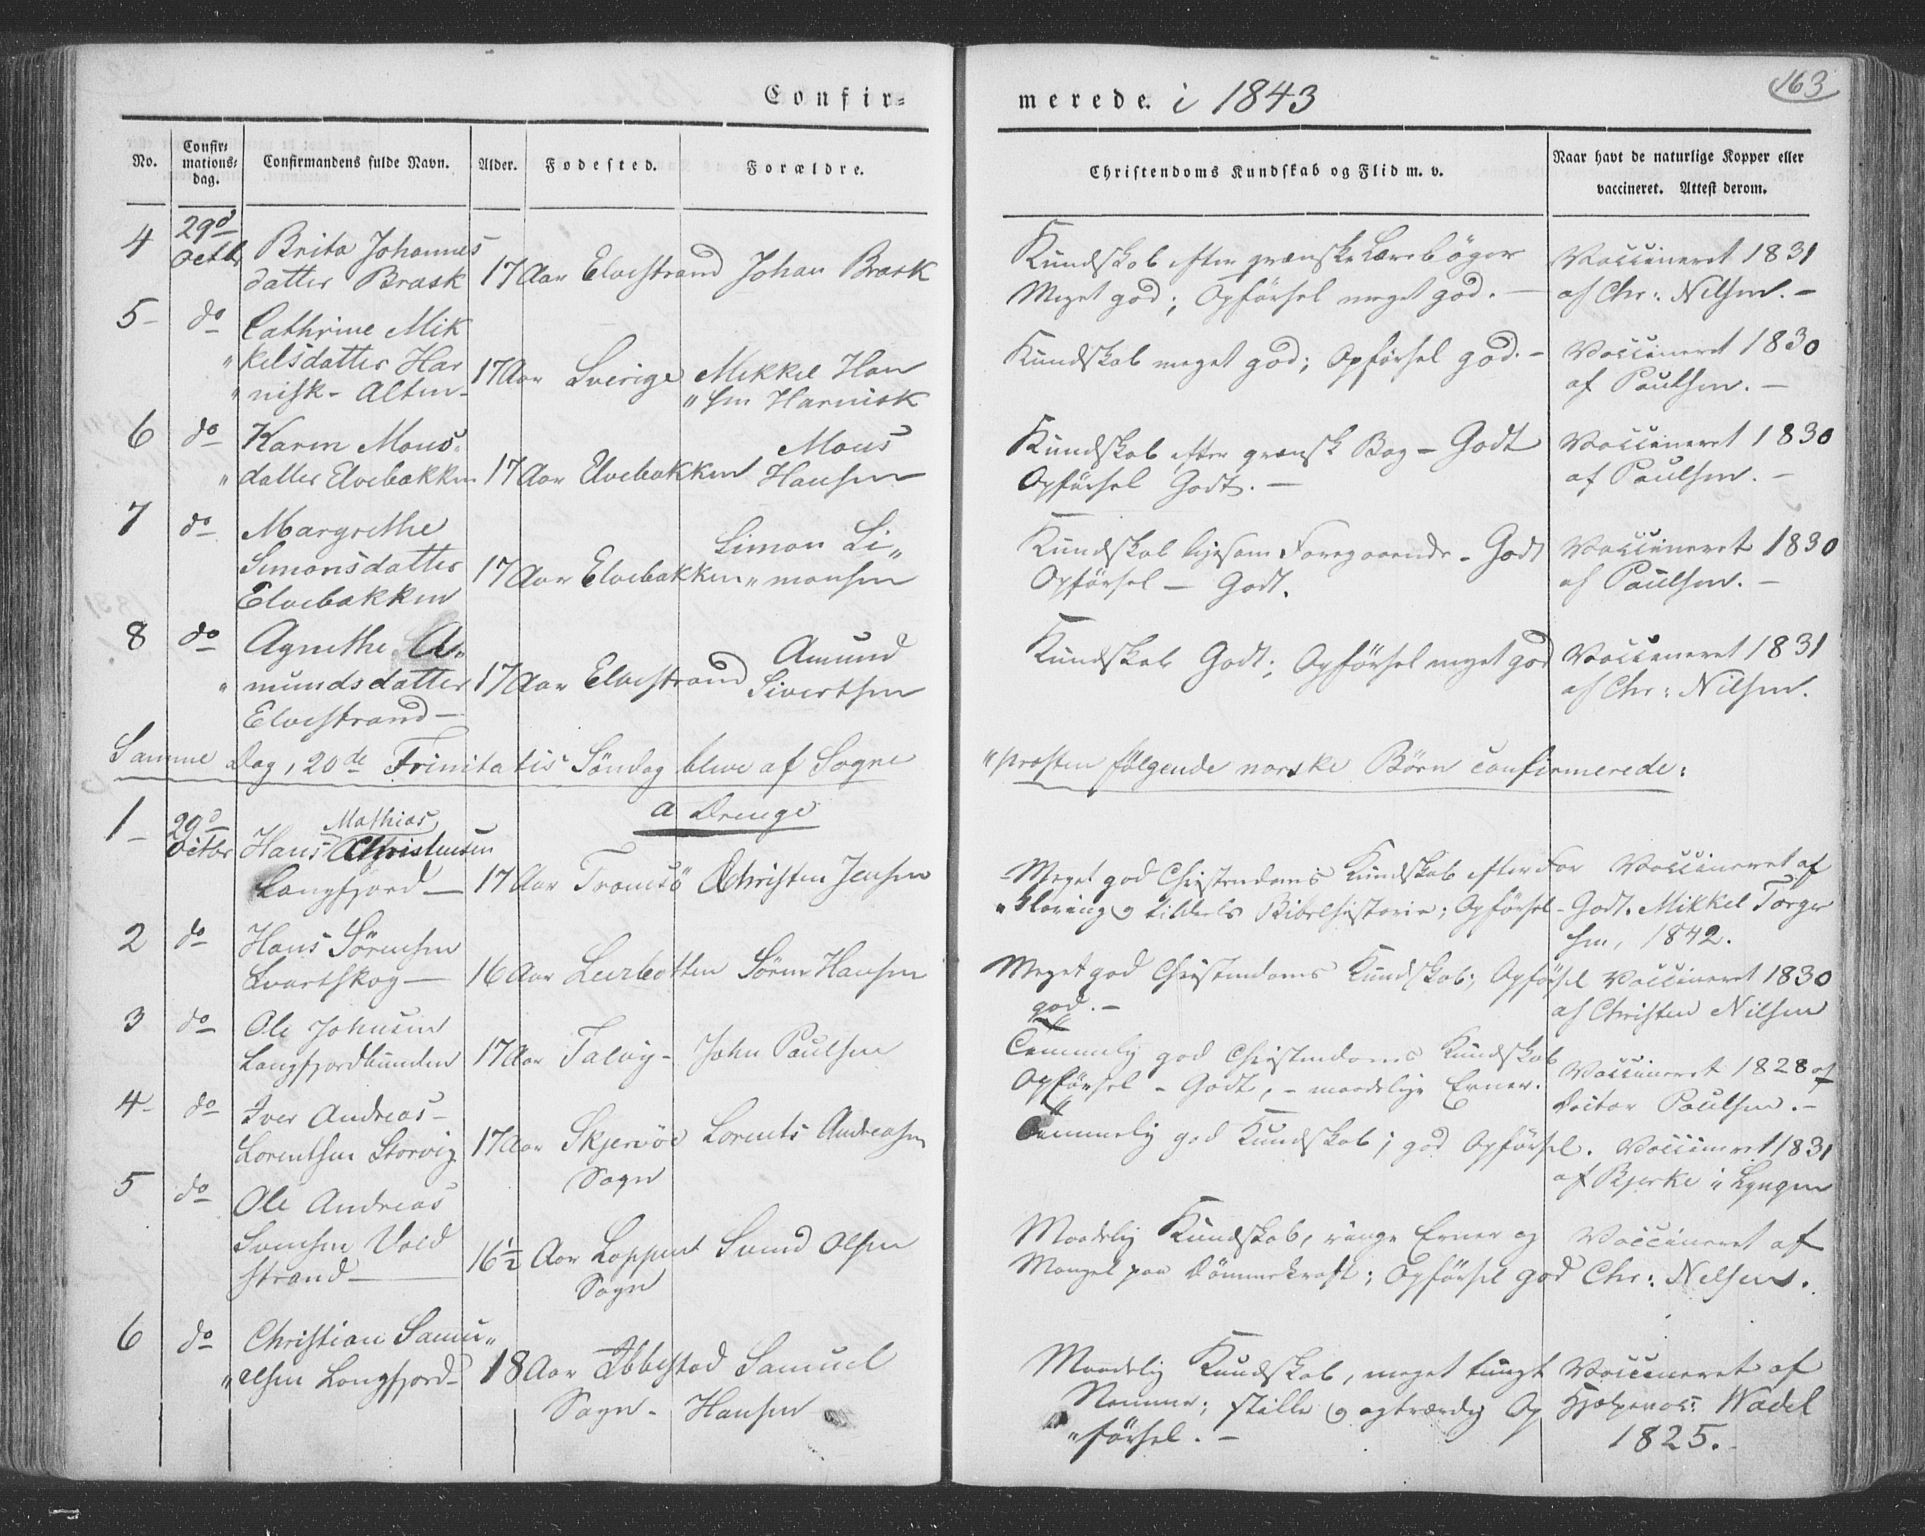 Confir=
merede. i 1843
163
No.
Confir=
mations=
dag.
Confirmandens fulde Navn.
Alder.
Fodested.
Forældre.
Christendoms Kundskab og Flid m. v.
Naar havt de naturlige Kopper eller
vaccineret. Attest derom.
4 29d Octbr Brita Johannes
datter Brask 17 Aar Elvestrand Johan Brask
Kundskab efter qvænske Lærebøger
Meget god; Opførsel meget god. —
Vaccineret 1831
af Chr: Nilsen. —
5 — do Cathrine Mik
" kelsdatter Har 17 Aar Sverige Mikkel Han
" nisk - Alten - " sen Harnisk
Kundskab meget god; Opførsel god. —
Vaccineret 1830
af Paulsen. —
6 do Karen Mons
" datter Elvebakken 17 Aar Elvebakken Mons
Hansen
Kundskab efter qvænsk Bog — Godt
Opførsel Godt. —
Vaccineret 1830
af Paulsen. —
7 do Margrethe
Simonsdatter 17 Aar Elvebakken Simon Si"
Elvebakken " monsen
Kundskab ligesom Foregaaende — Godt
Opførsel — Godt.
Vaccineret 1830
af Paulsen. —
8 do Agnethe A"
" mundsdatter 17 Aar Elvestrand Amund
Elvestrand — Sivertsen
Kundskab Godt; Opførsel meget god
Vaccineret 1831
af Chr: Nilsen.
Samme Dag, 20de Trinitatis Søndag bleve af Sogne
" præsten følgende norske Børn confirmerede:
a Drenge
1 — 29d Octbr Hans Mathias Christensen
Langfjord — 17 Aar Tromsö Christen Jensen
Meget god Christendoms Kundskab efter For
" klaring og tildels Bibelhistorie; Opførsel — Godt.
Vaccineret af
Mikkel Torger
sen, 1842.
2 do Hans Sörensen
Svartskog — 16 Aar Leirbotten Sören Hansen
Meget god Christendoms Kundskab; Opførsel
god. —
Vaccineret 1830
af Christen Nilsen
3 do Ole Johnsen
Langfjordbunden 17 Aar Talvig - John Paulsen
Temmelig god Christendoms Kundskab
Opførsel — Godt, — maadelige Evner.
Vaccineret 1828 af
Doctor Paulsen. —
4 - do Iver Andreas —
Lorentsen Storvig 17 Aar Skjervöe Lorents Andreasen
Sogn
Temmelig god Kundskab; god Opførsel.
Vaccineret 1831
af Bjerke i Lyngen
5 do Ole Andreas
Svensen Vold
strand — 16½ Aar Loppens Svend Olsen
Sogn
Maadelig Kundskab, ringe Evner og
Mangel paa Dømmekraft; Opførsel god
Vaccineret af
Chr: Nilsen.
6 do Christian Samu"
" elsen Langfjord - 18 Aar Ibbestad Samuel
Sogn - Hansen
Maadelig Kundskab, meget tungt
Nemme; stille og agtværdig Op
" førsel. —
Vaccineret af
Hjælpevac: Wadel
1825.